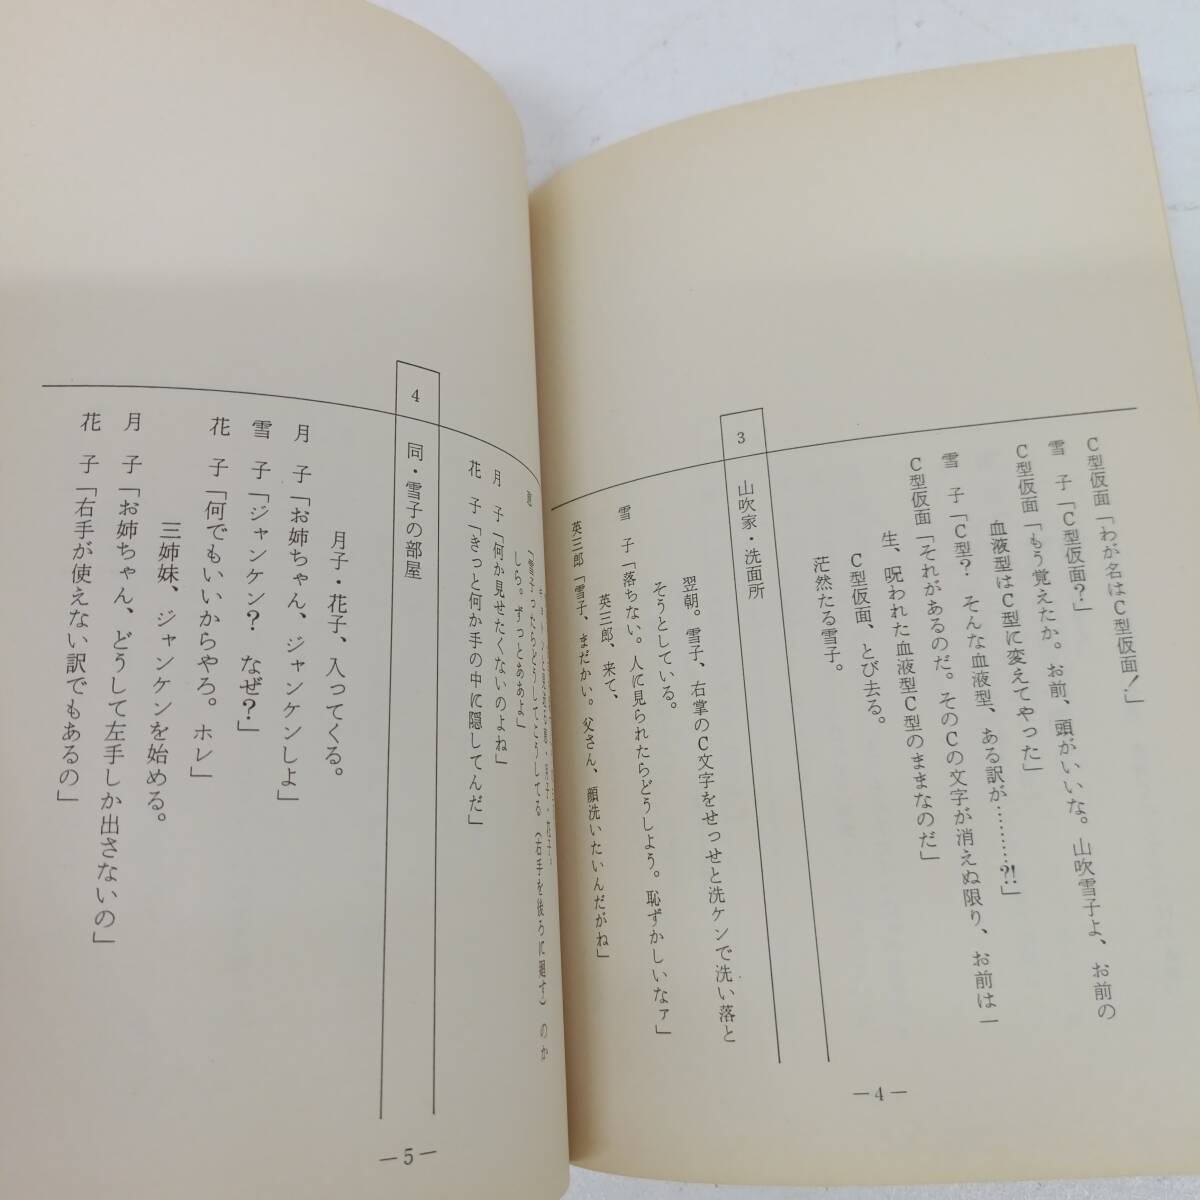 C型仮面「わが名はC型仮面！」
雪　子「C型仮面？」
C型仮面「もう覚えたか。お前、頭がいいな。山吹雪子よ、お前の
血液型はC型に変えてやった」
雪　子「C型？　そんな血液型、ある訳が………?!」
C型仮面「それがあるのだ。そのCの文字が消えぬ限り、お前は一
生、呪われた血液型C型のままなのだ」
C型仮面、とび去る。
茫然たる雪子。
3　山吹家・洗面所
翌朝。雪子、右掌のC文字をせっせと洗ケンで洗い落と
そうとしている。
雪　子「落ちない。人に見られたらどうしよう。恥ずかしいなァ」
英三郎、来て、
英三郎「雪子、まだかい。父さん、顔洗いたいんだがね」
—4—
「雪子ったらどうしてこうしてる（右手を後ろに廻す）のか
しら。ずっとああよ」
月　子「何か見せたくないのよね」
花　子「きっと何か手の中に隠してんだ」
4　同・雪子の部屋
月子・花子、入ってくる。
月　子「お姉ちゃん、ジャンケンしよ」
雪　子「ジャンケン？　なぜ？」
花　子「何でもいいからやろ。ホレ」
三姉妹、ジャンケンを始める。
月　子「お姉ちゃん、どうして左手しか出さないの」
花　子「右手が使えない訳でもあるの」
—5—